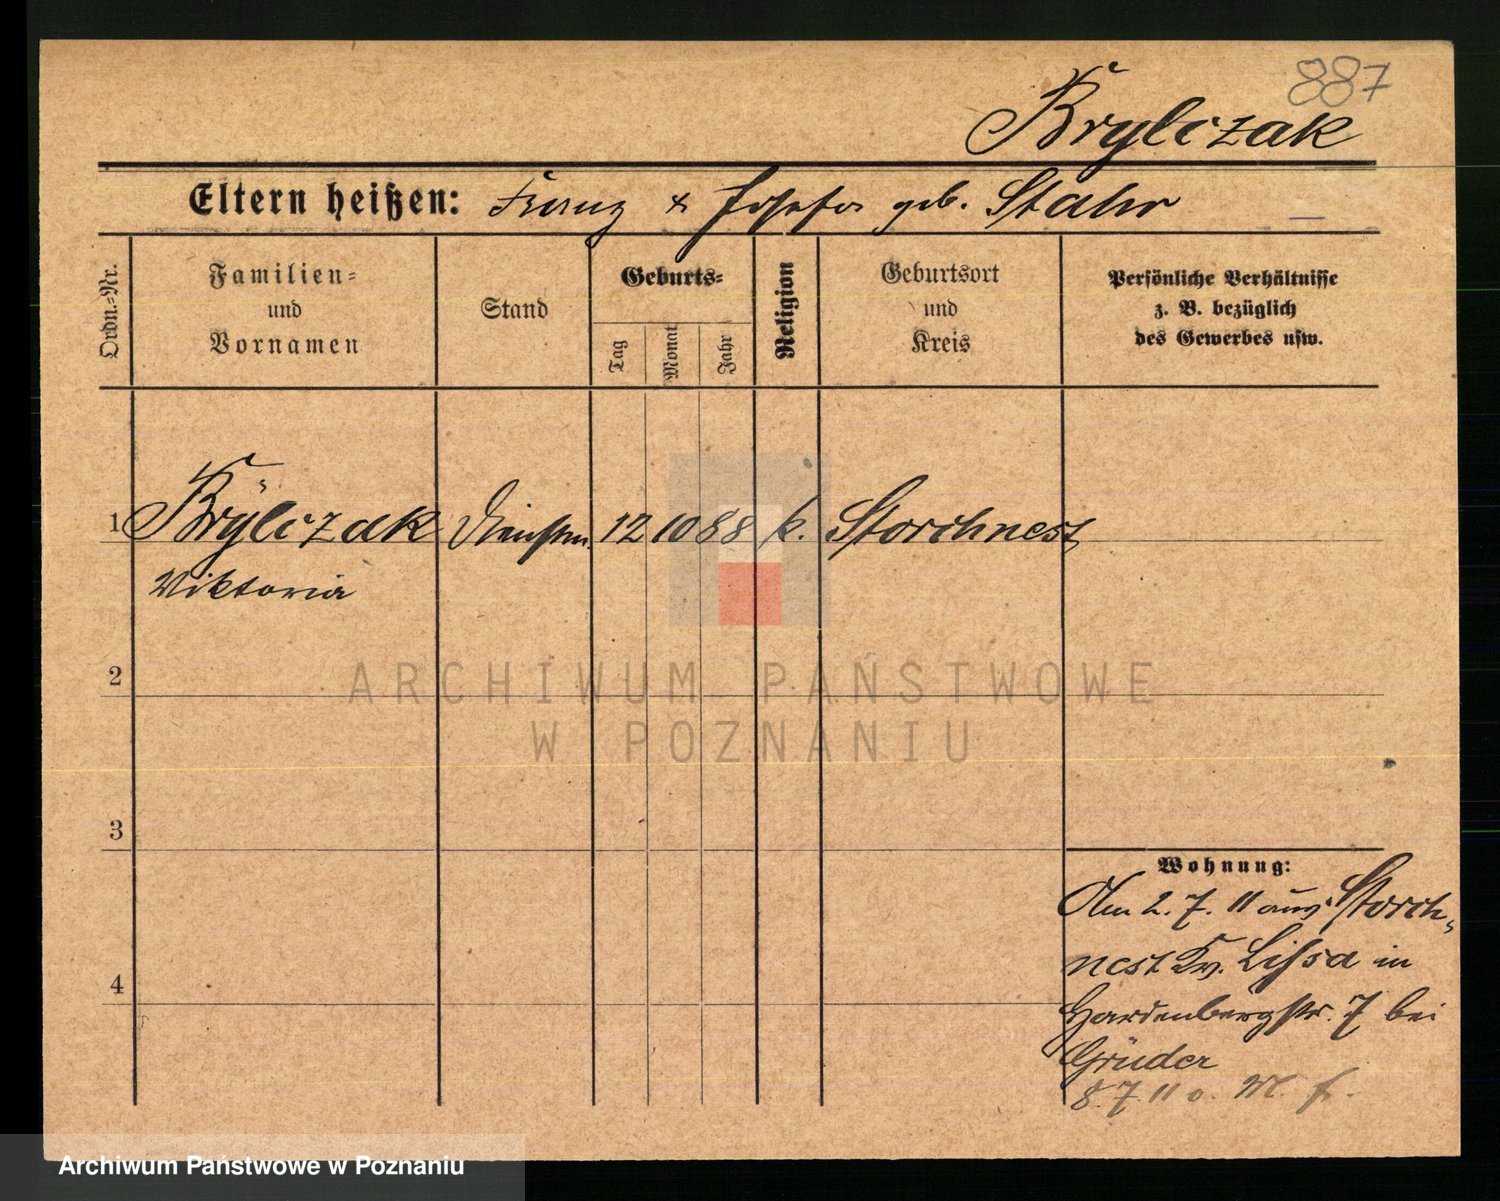 887
Krylczak
Eltern heißen: Franz & Josefa geb. Stahr
Ordn.-Nr.
Familien-
und
Vornamen
Stand
Geburts-
Tag
Monat
Jahr
Religion
Geburtsort
und
Kreis
Persönliche Verhältnisse
z. B. bezüglich
des Gewerbes usw.
1 Krylczak Dienstm. 12 10 88 k. Storchnest
Viktoria
2
3
4
Wohnung:
Am 2. 7. 11 aus Storch-
nest Kr. Lissa in
Hardenbergstr. 7 bei
Grüder
8. 7. 11 o. M. f.
ARCHIWUM PAŃSTWOWE
W POZNANIU
Archiwum Państwowe w Poznaniu